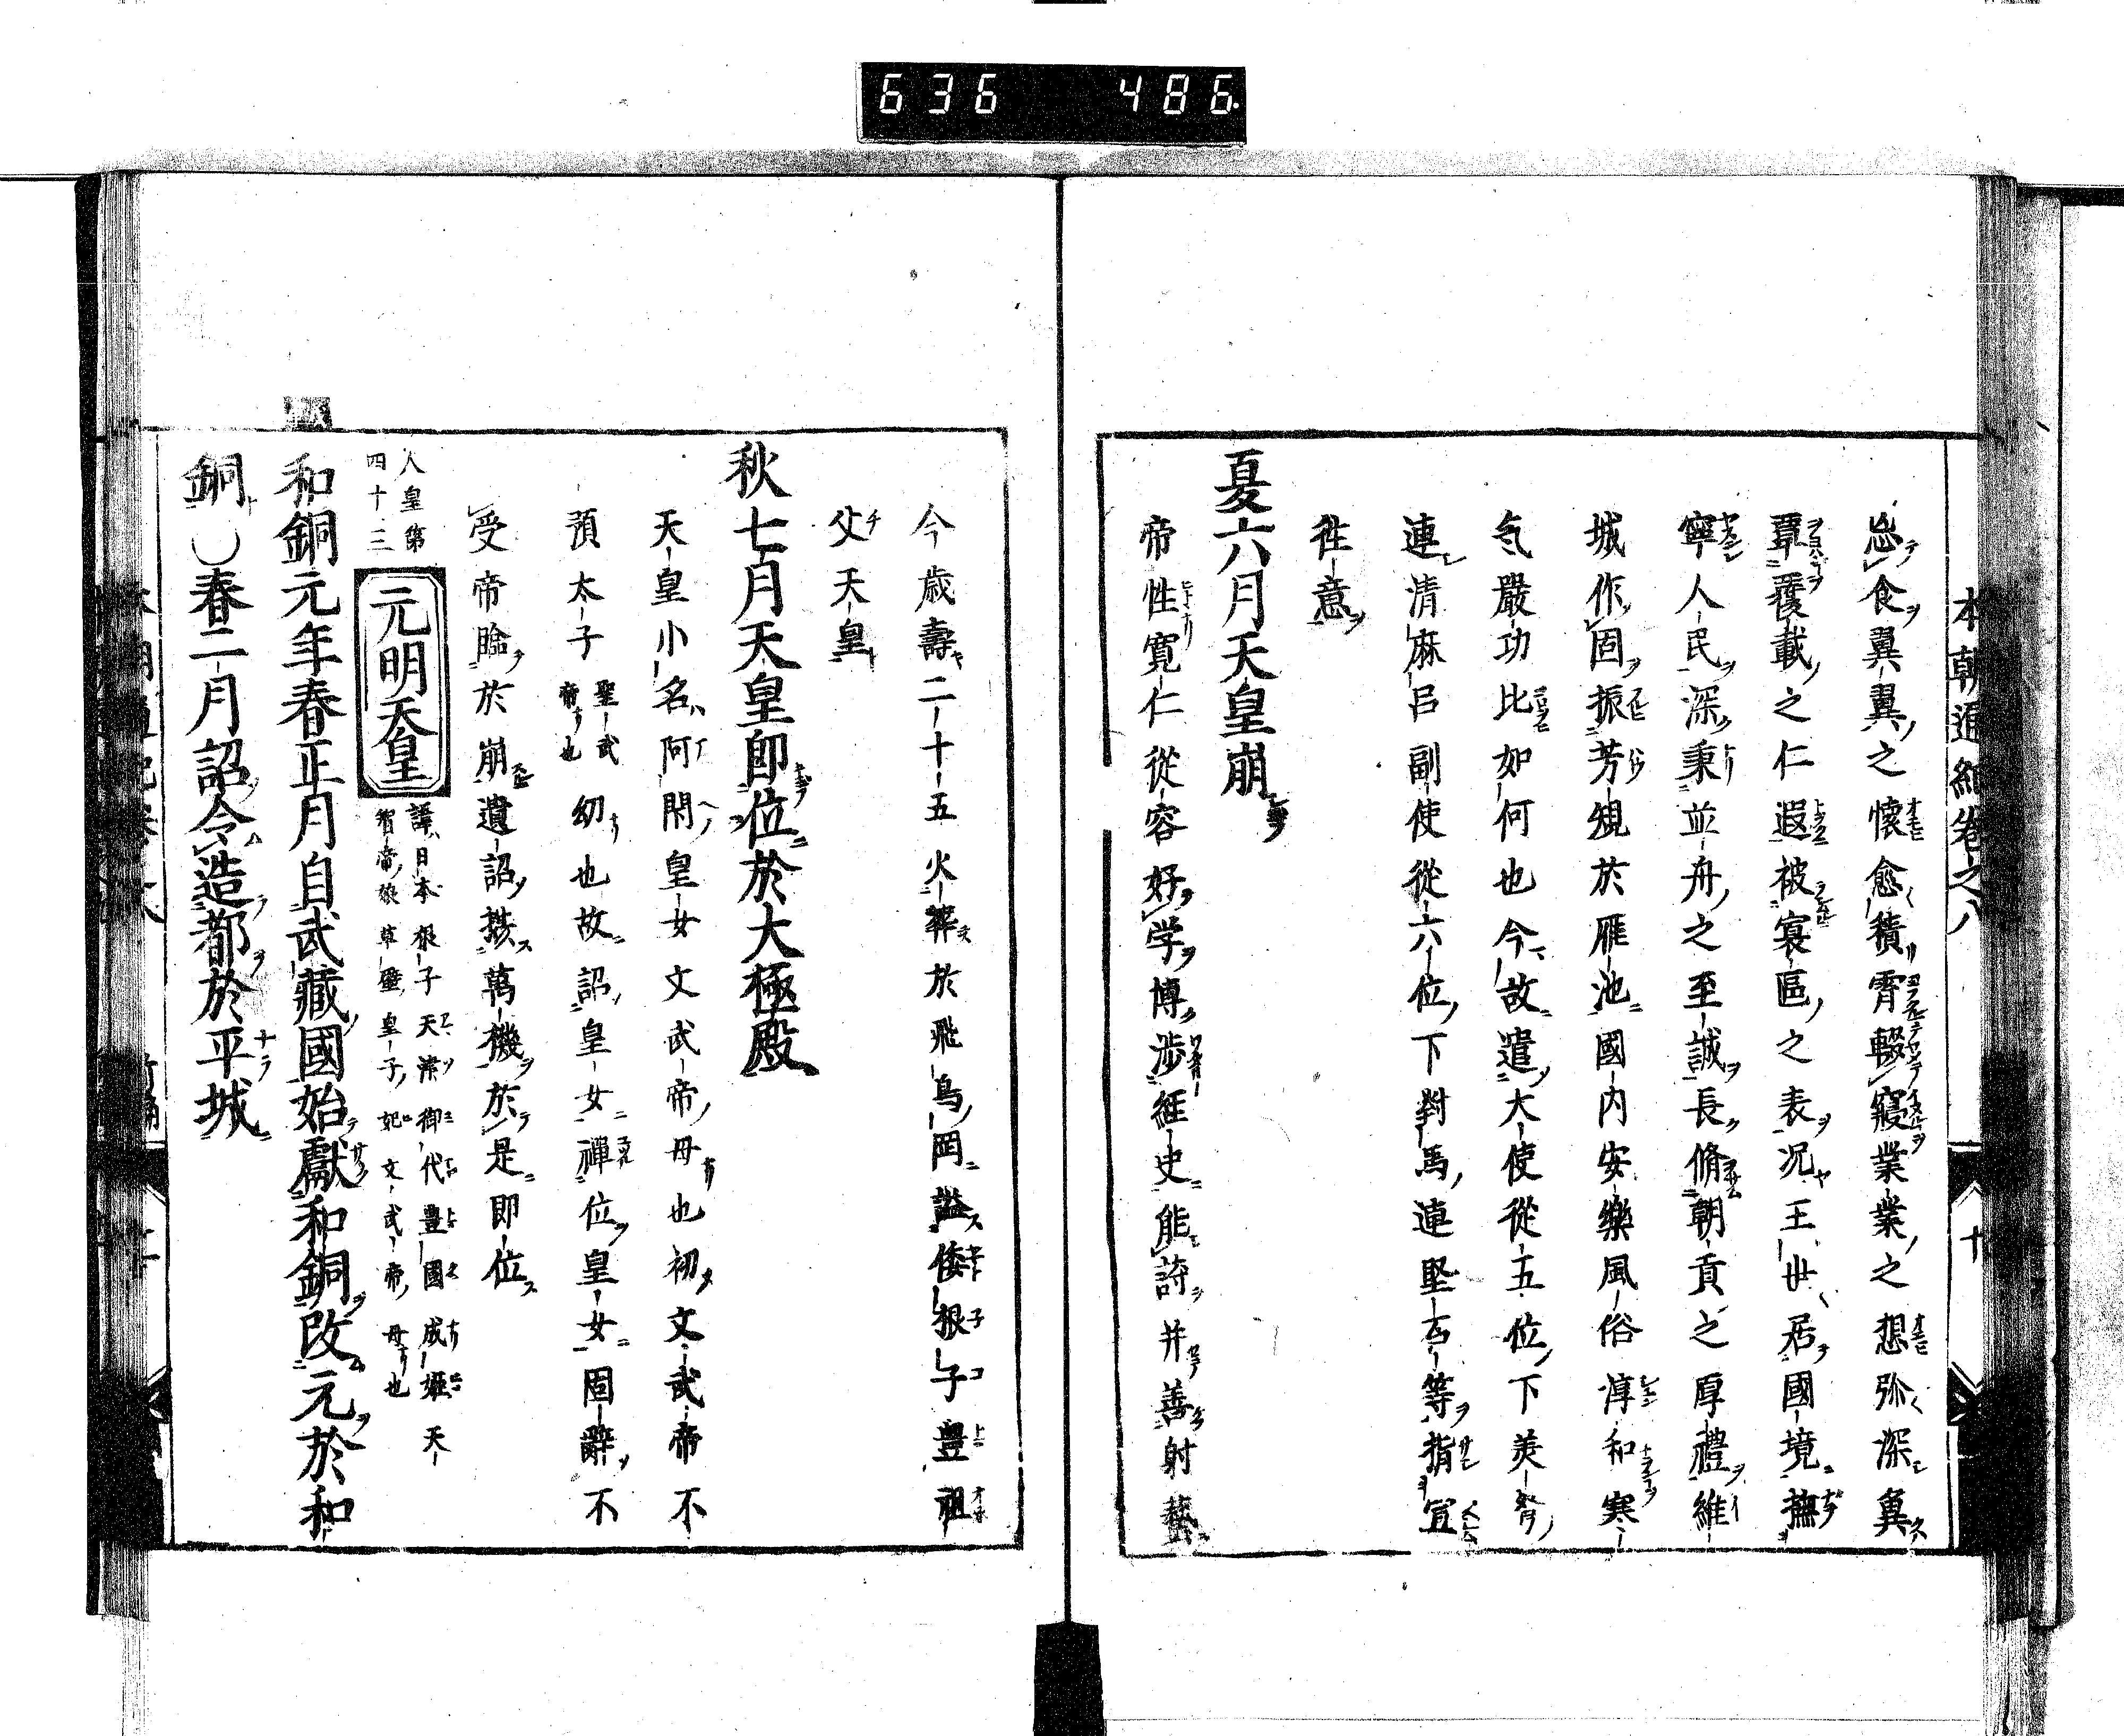 636 486
本朝通紀卷之八 十
忘食翼翼之懷愈積霄輟寢業業之想弥深冀
覃覆載之仁遐被寰區之表況王世居國境撫
寧人民深秉並舟之至誠長脩朝貢之厚禮維
城作固振芳規於雁池國内安樂風俗淳和寒
気嚴切比如何也今故遣大使從五位下美努
連清麻呂副使從六位下對馬連堅石等指宣
徃意
夏六月天皇崩
帝性寛仁從容好学博渉経史能詩并善射藝
今歳壽二十五火葬於飛鳥岡謚倭根子豊祖
父天皇
秋七月天皇即位於大極殿
天皇小名阿閇皇女文武帝母也初文武帝不
預太子聖武帝也幼也故詔皇女禪位皇女固辭不
受帝臨於崩遺詔挍萬機於是即位
人皇第四十三
元明天皇
諱日本根子天津御代豊國成姫天
智帝娘草壁皇子妃文武帝母也
和銅元年春正月自武藏國始獻和銅改元於和
銅○春二月詔令造都於平城